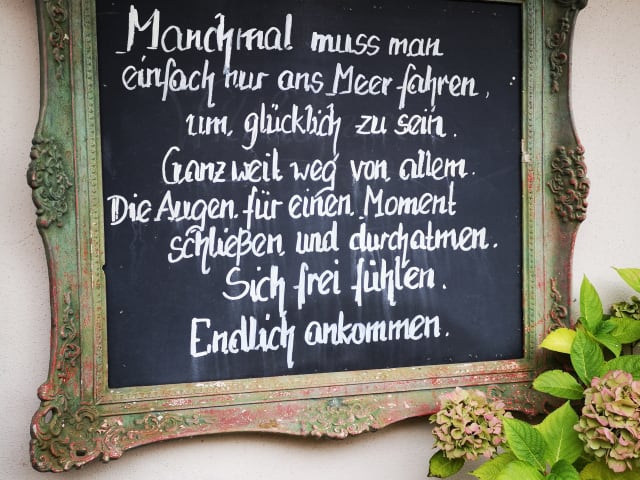 Manchmal muss man
einfach nur ans Meer fahren,
um glücklich zu sein.
Ganz weit weg von allem.
Die Augen für einen Moment
schließen und durchatmen.
Sich frei fühlen.
Endlich ankommen.